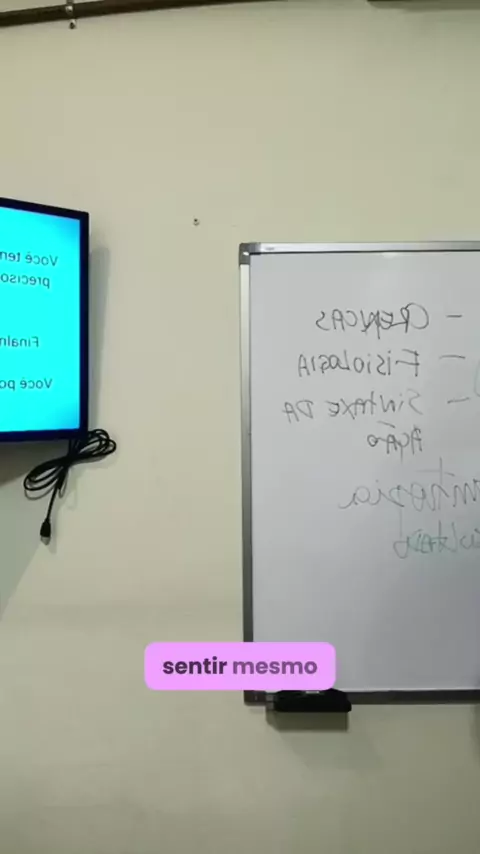 Você ten
preciso
Finaln
Você po
- CRENCAS
- FISIOLOGIA
- SINTAXE DA
AÇÃO
sentir mesmo